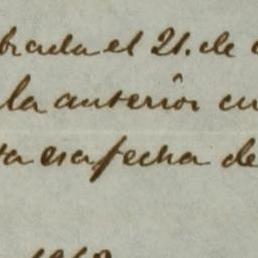 brada el 21. de
la anterior en
ta esa fecha de